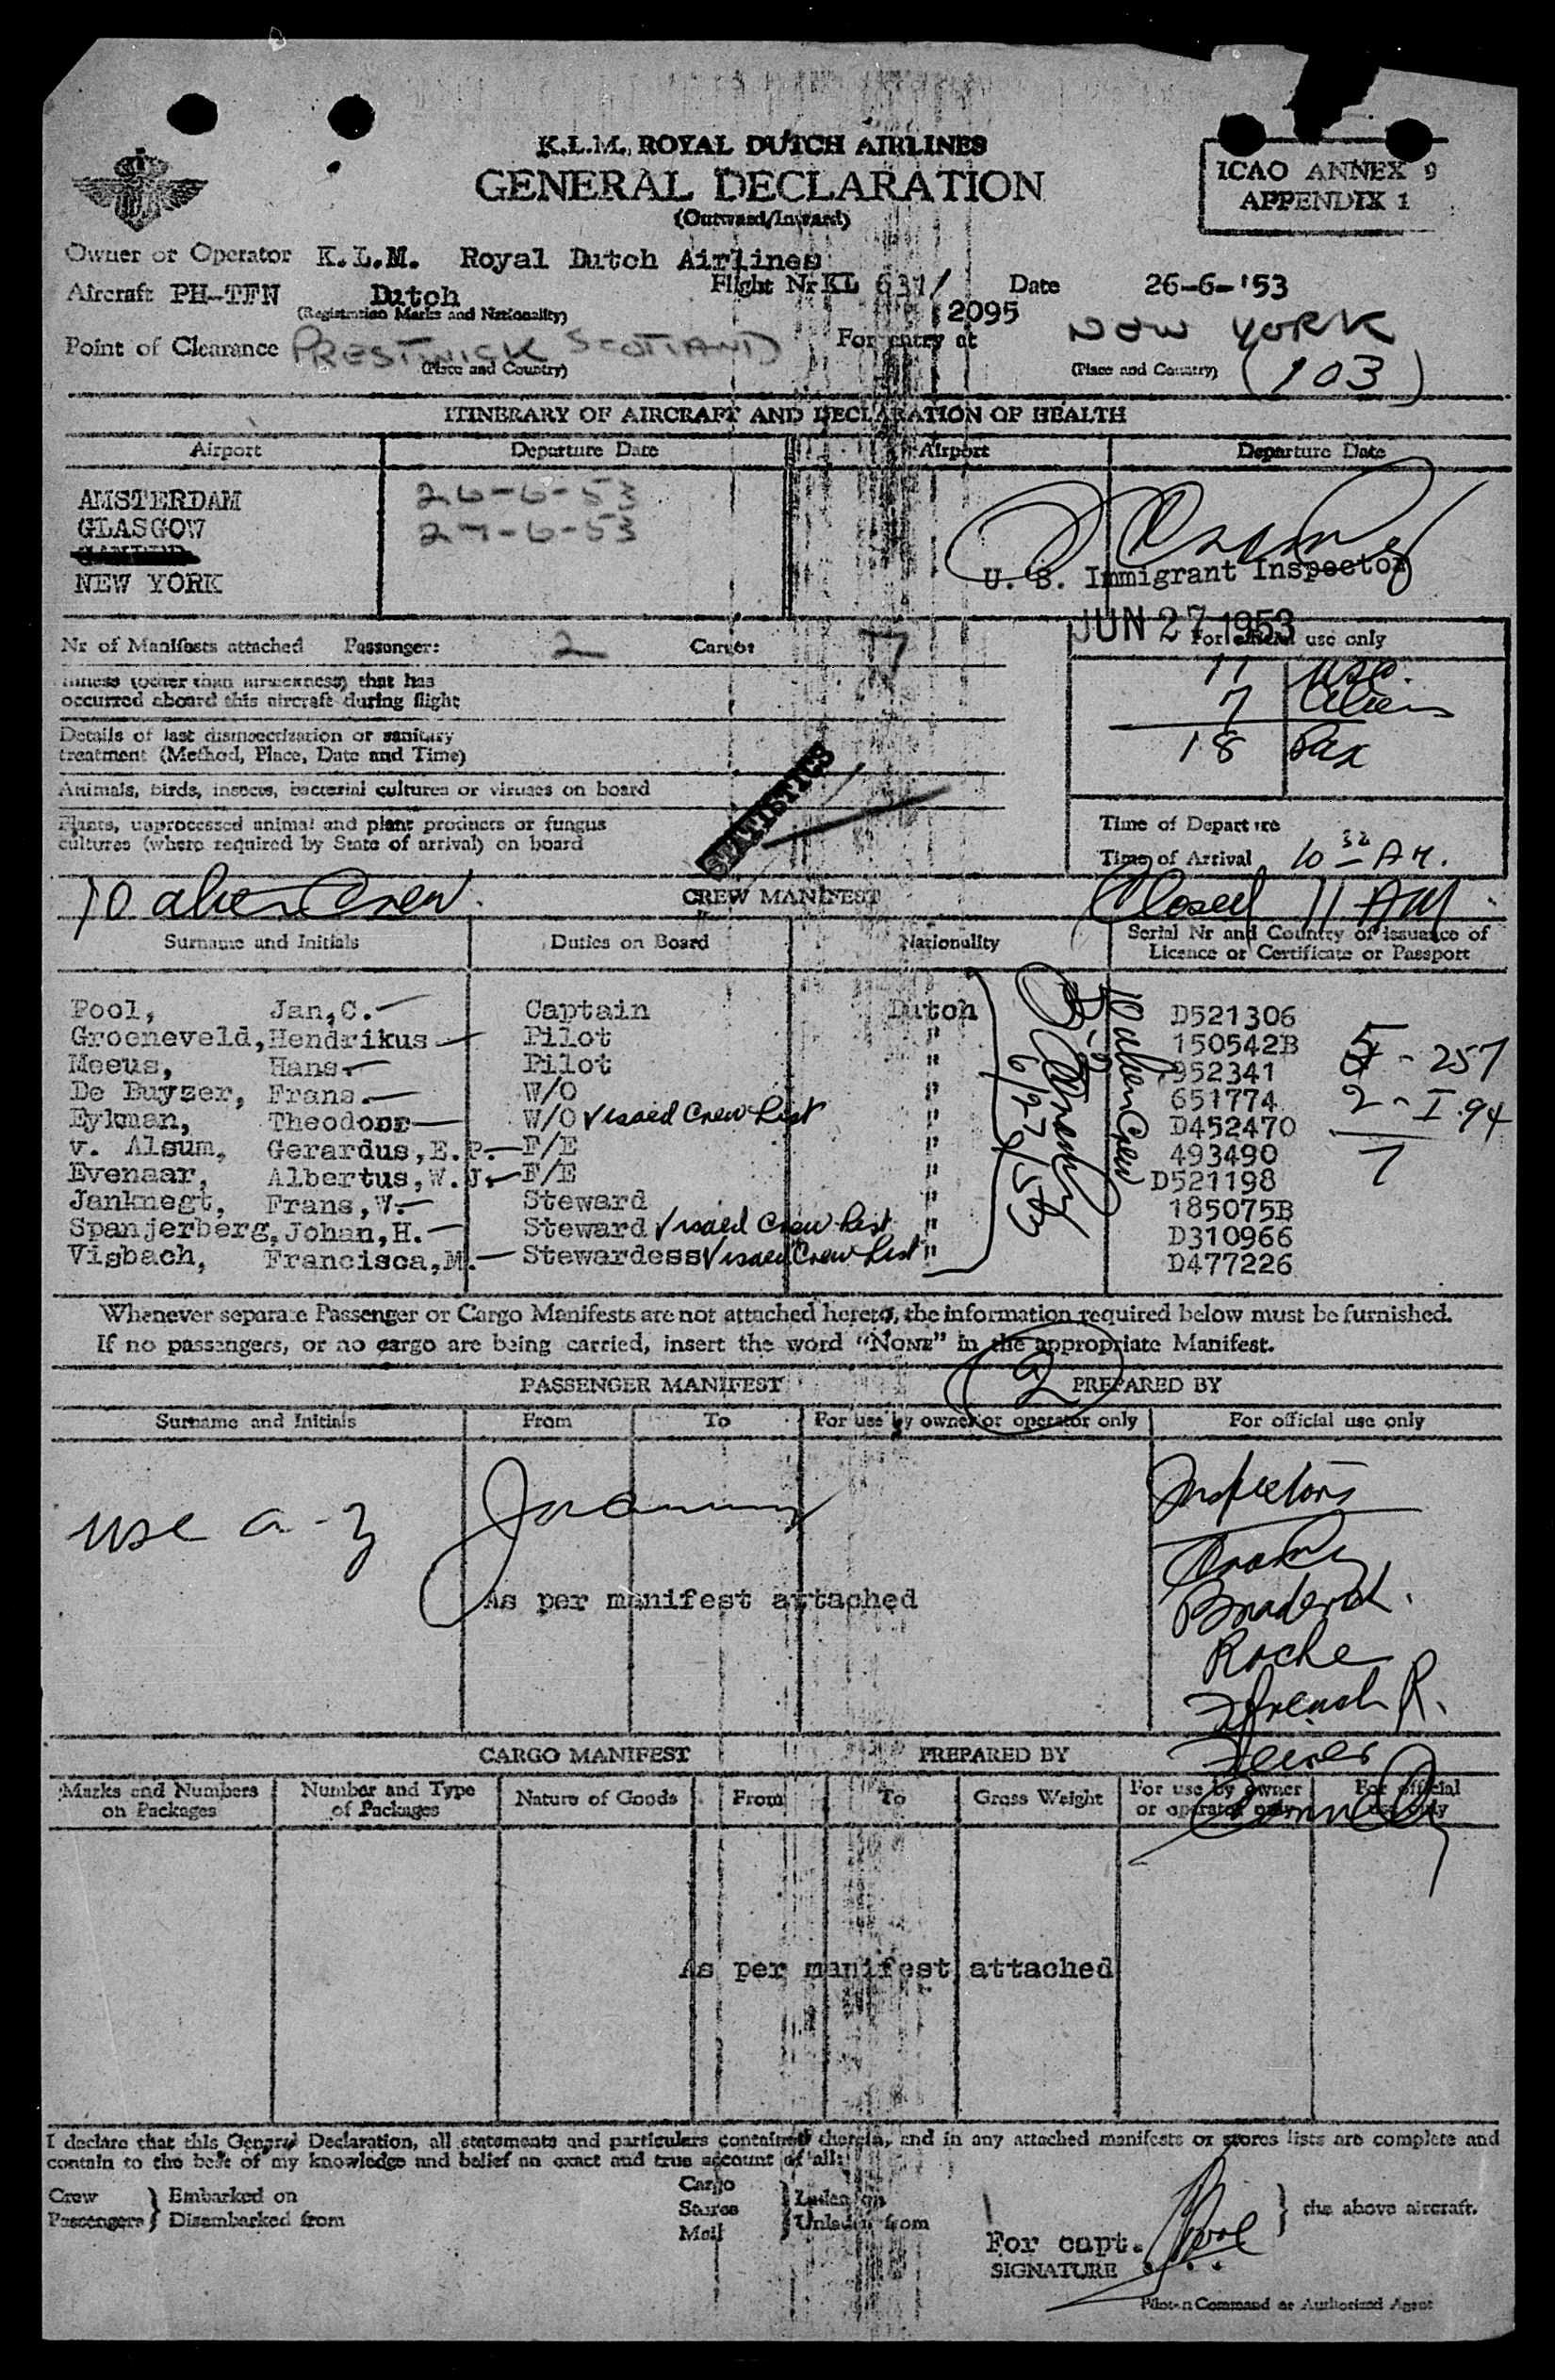 K.L.M. ROYAL DUTCH AIRLINES
GENERAL DECLARATION
(Outward/Inward)
ICAO ANNEX 9
APPENDIX 1
Owner or Operator K.L.M. Royal Dutch Airlines
Aircraft PH-TFN Dutch Flight Nr KL 631/ 2095 Date 26-6-'53
(Registration Marks and Nationality)
Point of Clearance PRESTWICK SCOTLAND For entry at NEW YORK
(Place and Country) (Place and Country) (103)
ITINERARY OF AIRCRAFT AND DECLARATION OF HEALTH
Airport Departure Date Airport Departure Date
AMSTERDAM 26-6-53
GLASGOW 27-6-53
NEW YORK
U. S. Immigrant Inspector
JUN 27 1953
Nr of Manifests attached Passenger: 2 Cargo: 7
For official use only
11 USC.
7 Aliens
18 Pax
Illness (other than airsickness) that has
occurred aboard this aircraft during flight
Details of last disinsectization or sanitary
treatment (Method, Place, Date and Time)
Animals, birds, insects, bacterial cultures or viruses on board
Plants, unprocessed animal and plant products or fungus
cultures (where required by State of arrival) on board
STATISTICS
Time of Departure
Time of Arrival 10 32 AM.
10 alien Crew. CREW MANIFEST Closed 11 AM.
Surname and Initials Duties on Board Nationality Serial Nr and Country of issuance of
Licence or Certificate or Passport
Pool, Jan,C. Captain Dutch D521306
Groeneveld, Hendrikus Pilot " 150542B
Meeus, Hans Pilot " 952341
De Buyzer, Frans. W/O " 651774
Eykman, Theodoor W/O Visaed Crew List " D452470
v. Alsum, Gerardus,E.P. F/E " 493490
Evenaar, Albertus,W.J. F/E " D521198
Janknegt, Frans,W. Steward " 185075B
Spanjerberg, Johan,H. Steward Visaed Crew List " D310966
Visbach, Francisca,M. Stewardess Visaed Crew List " D477226
10 alien Crew
6/27/53
5 - 257
2 - I.94
7
Whenever separate Passenger or Cargo Manifests are not attached hereto, the information required below must be furnished.
If no passengers, or no cargo are being carried, insert the word "NONE" in the appropriate Manifest.
PASSENGER MANIFEST (2) PREPARED BY
Surname and Initials From To For use by owner or operator only For official use only
USC a-z
As per manifest attached
Inspectors
Roche
French R.
CARGO MANIFEST PREPARED BY
Marks and Numbers
on Packages
Number and Type
of Packages
Nature of Goods From To Gross Weight
For use by owner
or operator only
For official
use only
As per manifest attached
I declare that this General Declaration, all statements and particulars contained therein, and in any attached manifests or stores lists are complete and
contain to the best of my knowledge and belief an exact and true account of all:
Crew
Passengers
} Embarked on
Disembarked from
Cargo
Stores
Mail
} Laden on
Unladen from
} the above aircraft.
For capt. Pool
SIGNATURE
Pilot-in Command or Authorized Agent